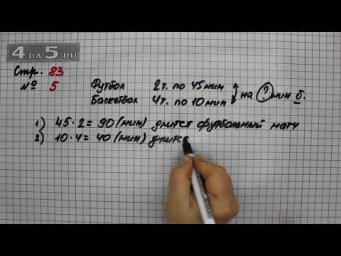 4DA5.RU
Стр. 83
№ 5
Футбол 2т. по 45 мин
Баскетбол 4т. по 10 мин
на ? мин б.
1) 45 · 2 = 90 (мин) длится футбольный матч
2) 10 · 4 = 40 (мин) длится